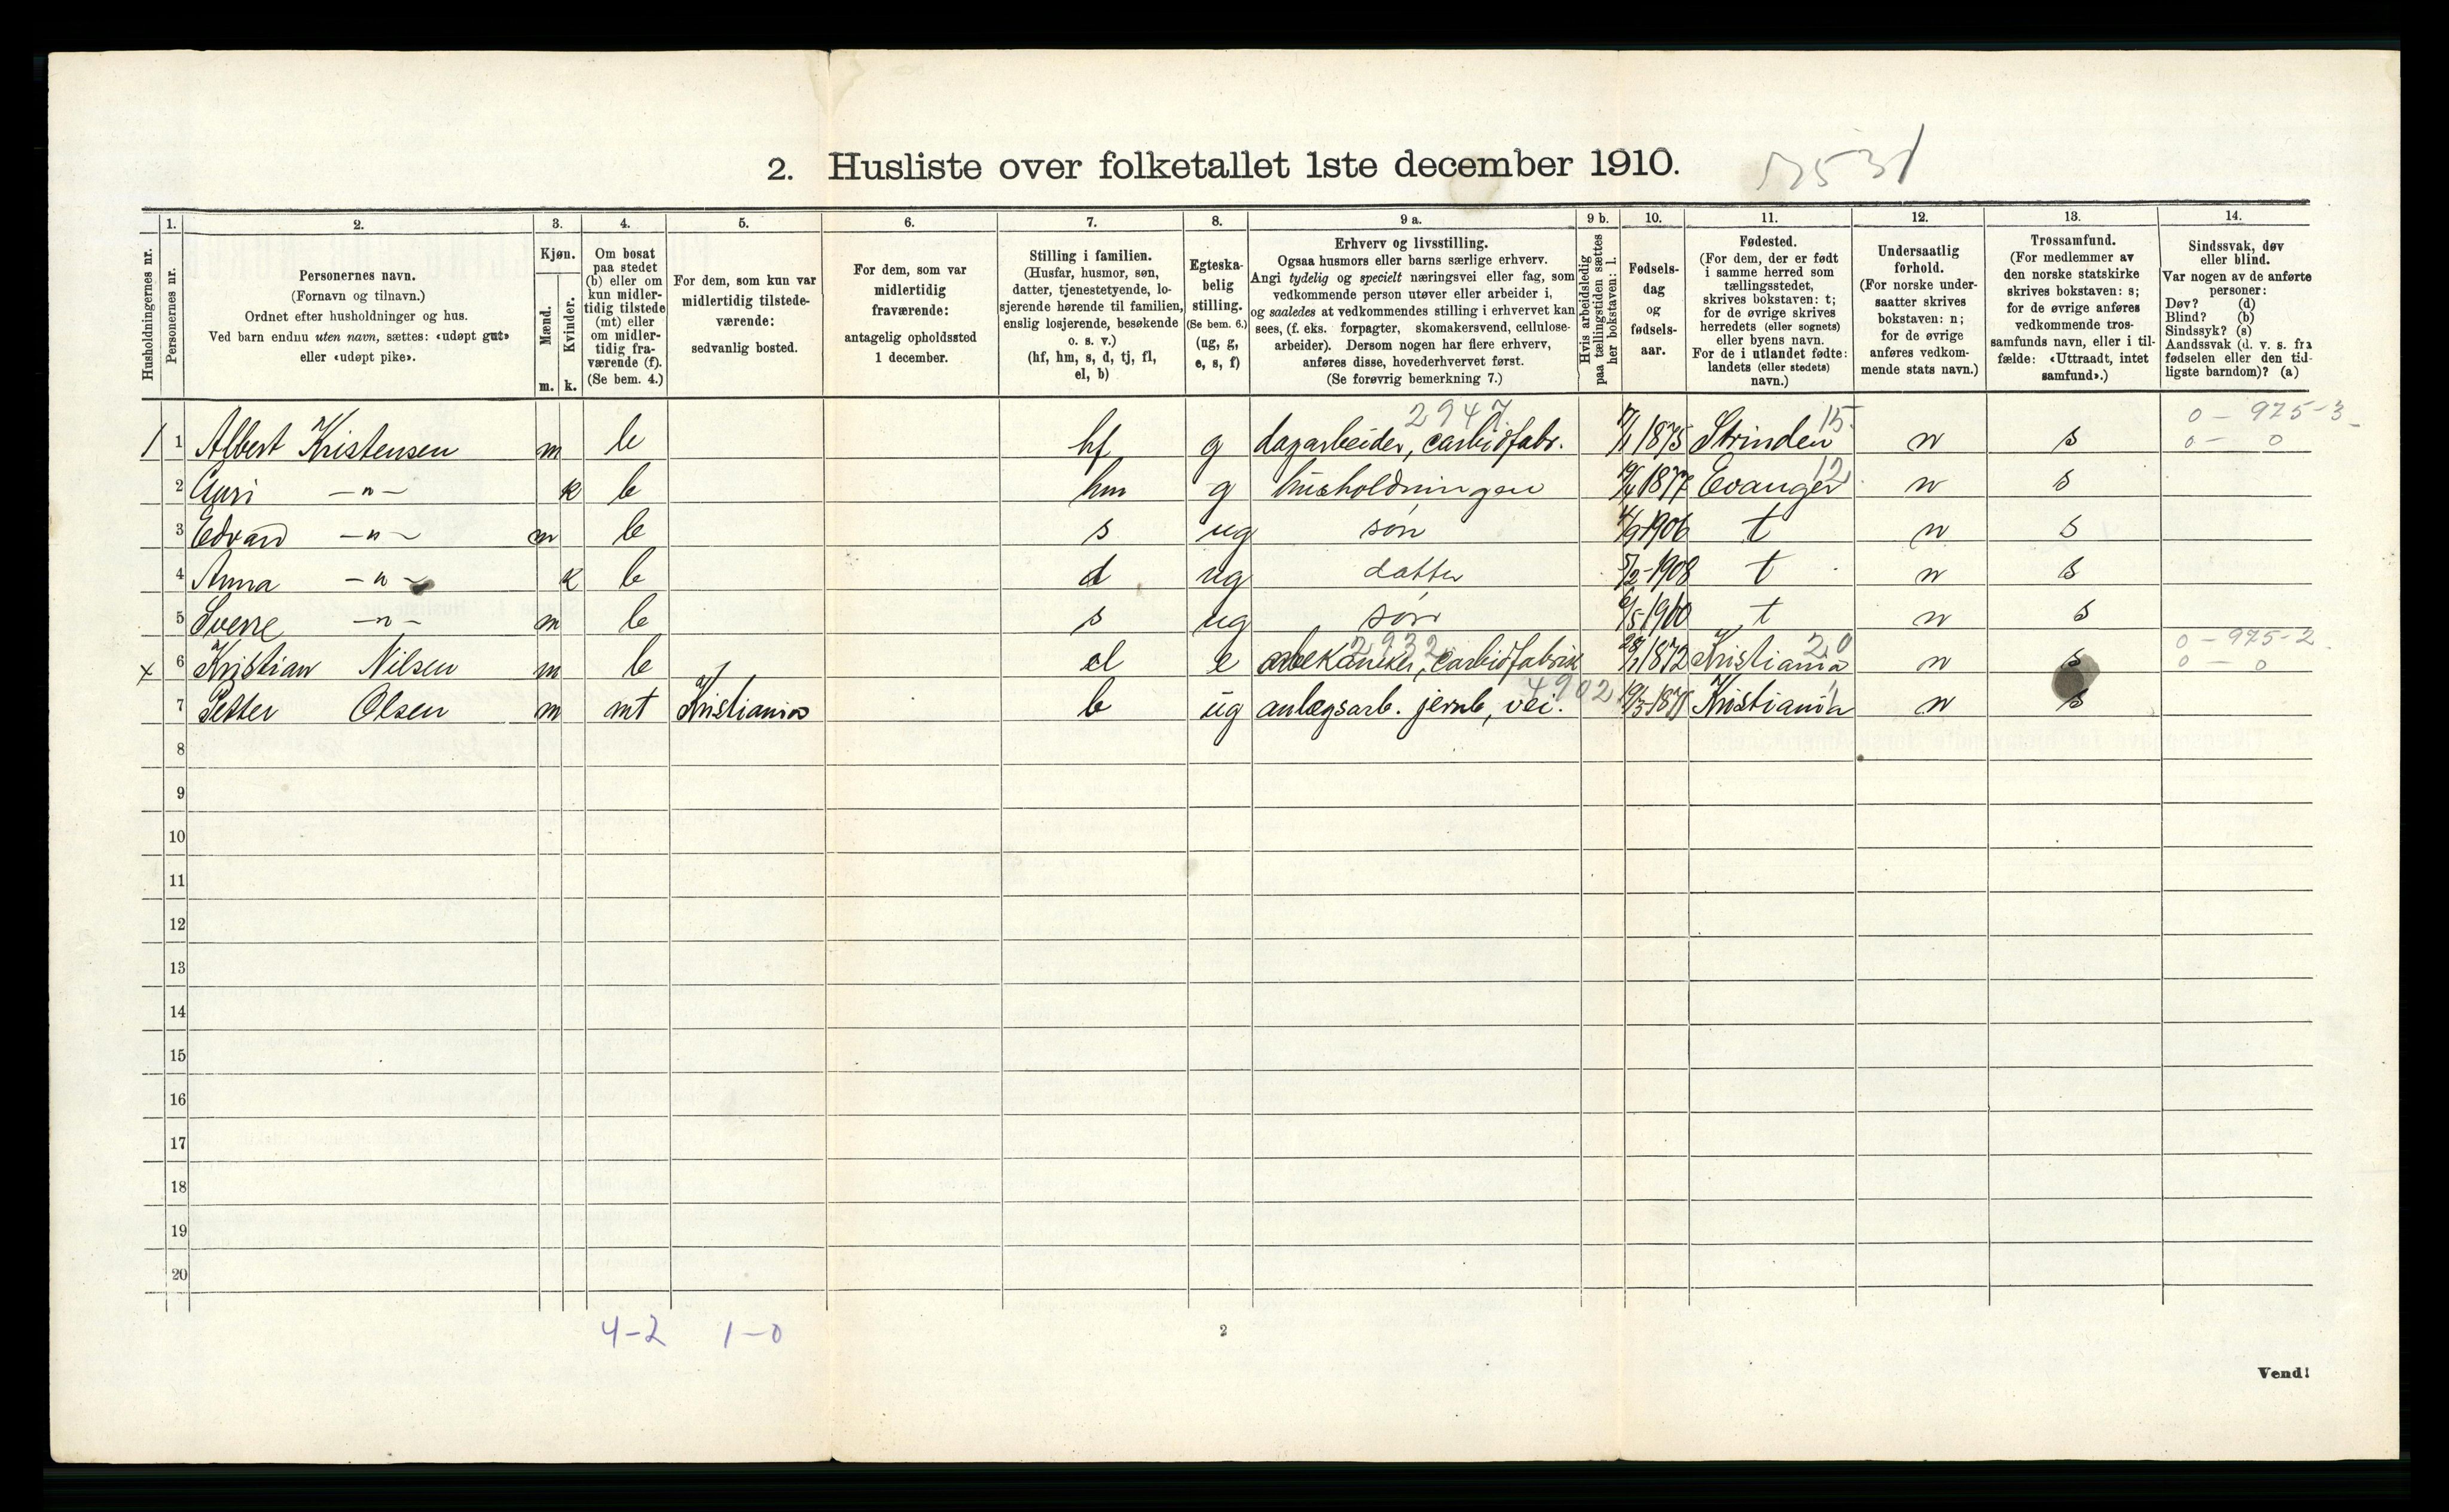 2. Husliste over folketallet 1ste december 1910.
1. 2. 3. 4. 5. 6. 7. 8. 9 a. 9 b. 10. 11. 12. 13. 14.
Husholdningernes nr.
Personernes nr.
Personernes navn.
(Fornavn og tilnavn.)
Ordnet efter husholdninger og hus.
Ved barn endnu uten navn, sættes: «udøpt gut»
eller «udøpt pike».
Kjøn.
Mænd.
Kvinder.
m. k.
Om bosat
paa stedet
(b) eller om
kun midler-
tidig tilstede
(mt) eller
om midler-
tidig fra-
værende (f).
(Se bem. 4.)
For dem, som kun var
midlertidig tilstede-
værende:
sedvanlig bosted.
For dem, som var
midlertidig
fraværende:
antagelig opholdssted
1 december.
Stilling i familien.
(Husfar, husmor, søn,
datter, tjenestetyende, lo-
sjerende hørende til familien,
enslig losjerende, besøkende
o. s. v.)
(hf, hm, s, d, tj, fl,
el, b)
Egteska-
belig
stilling.
(Se bem. 6.)
(ug, g,
e, s, f)
Erhverv og livsstilling.
Ogsaa husmors eller barns særlige erhverv.
Angi tydelig og specielt næringsvei eller fag, som
vedkommende person utøver eller arbeider i,
og saaledes at vedkommendes stilling i erhvervet kan
sees, (f. eks. forpagter, skomakersvend, cellulose-
arbeider). Dersom nogen har flere erhverv,
anføres disse, hovederhvervet først.
(Se forøvrig bemerkning 7.)
Hvis arbeidsledig
paa tællingstiden sættes
her bokstaven: l.
Fødsels-
dag
og
fødsels-
aar.
Fødested.
(For dem, der er født
i samme herred som
tællingsstedet,
skrives bokstaven: t;
for de øvrige skrives
herredets (eller sognets)
eller byens navn.
For de i utlandet fødte:
landets (eller stedets)
navn.)
Undersaatlig
forhold.
(For norske under-
saatter skrives
bokstaven: n;
for de øvrige
anføres vedkom-
mende stats navn.)
Trossamfund.
(For medlemmer av
den norske statskirke
skrives bokstaven: s;
for de øvrige anføres
vedkommende tros-
samfunds navn, eller i til-
fælde: «Uttraadt, intet
samfund».)
Sindssvak, døv
eller blind.
Var nogen av de anførte
personer:
Døv? (d)
Blind? (b)
Sindssyk? (s)
Aandssvak (d. v. s. fra
fødselen eller den tid-
ligste barndom)? (a)
2947 15 0 - 975-3
1 1 Albert Kristensen m b hf g dagarbeider, carbidfabr. 1875 Strinden n s 0 - 0
2 Guri -"- k b hm g husholdningen 1877 Evanger 12 n s
3 Edvard -"- m b s ug søn 1906 t n s
4 Anna -"- k b d ug datter 5/2-1908 t n s
5 Sverre -"- m b s ug søn 1910 t n s
2932 20 0 - 975-2
x 6 Kristian Nilsen m b el e carbidfabrik 1872 Kristiania n s 0 - 0
4902
7 Petter Olsen m mt Kristiania b ug anlægsarb. jernb, vei. Kristiania n s
8
9
10
11
12
13
14
15
16
17
18
19
20
4-2 1-0
2
Vend!